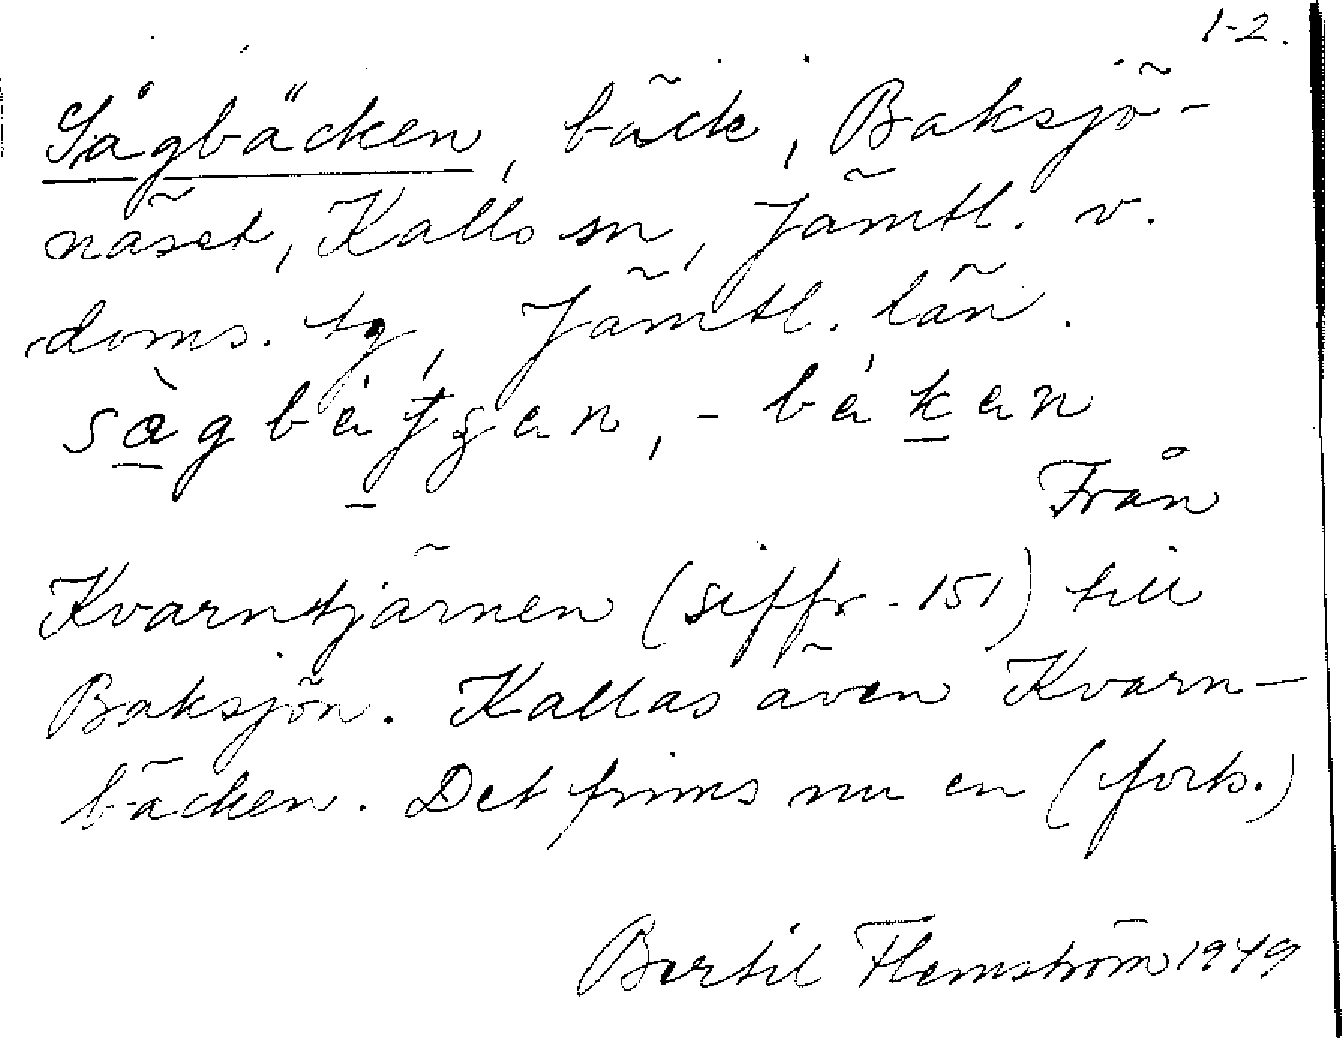 1-2.
Sågbäcken, bäck, Baksjö-
näset, Kalls sn, Jämtl. v.
doms. tg, Jämtl. län.
-bákan
Från
Kvarntjärnen (siffr. 151) till
Baksjön. Kallas även Kvarn-
bäcken. Det finns nu en (forts.)
Bertil Flemström 1949